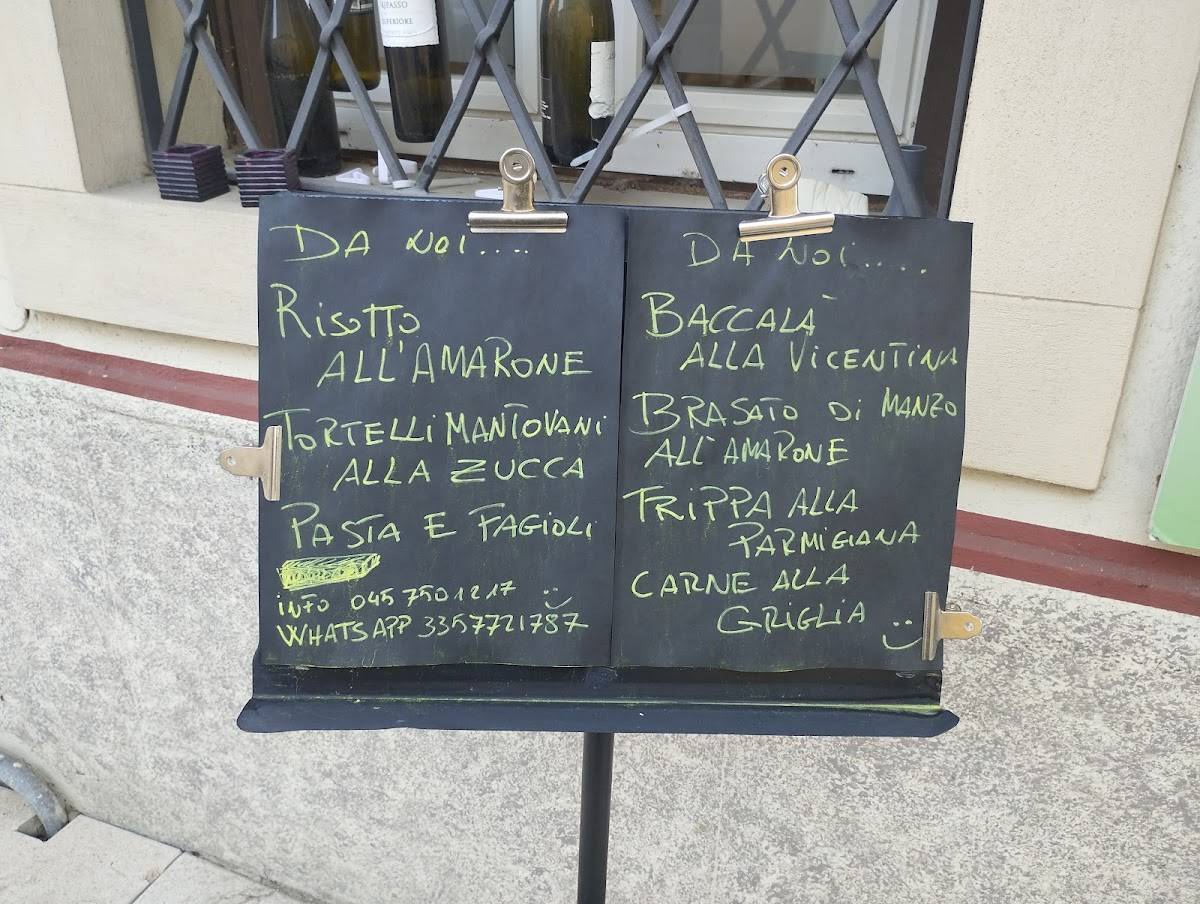 RIPASSO
SUPERIORE
DA NOI....
RISOTTO
ALL'AMARONE
TORTELLI MANTOVANI
ALLA ZUCCA
PASTA E FAGIOLI
INFO 045 7501217
WHATSAPP 3357721787
DA NOI.....
BACCALÀ
ALLA VICENTINA
BRASATO DI MANZO
ALL'AMARONE
TRIPPA ALLA
PARMIGIANA
CARNE ALLA
GRIGLIA